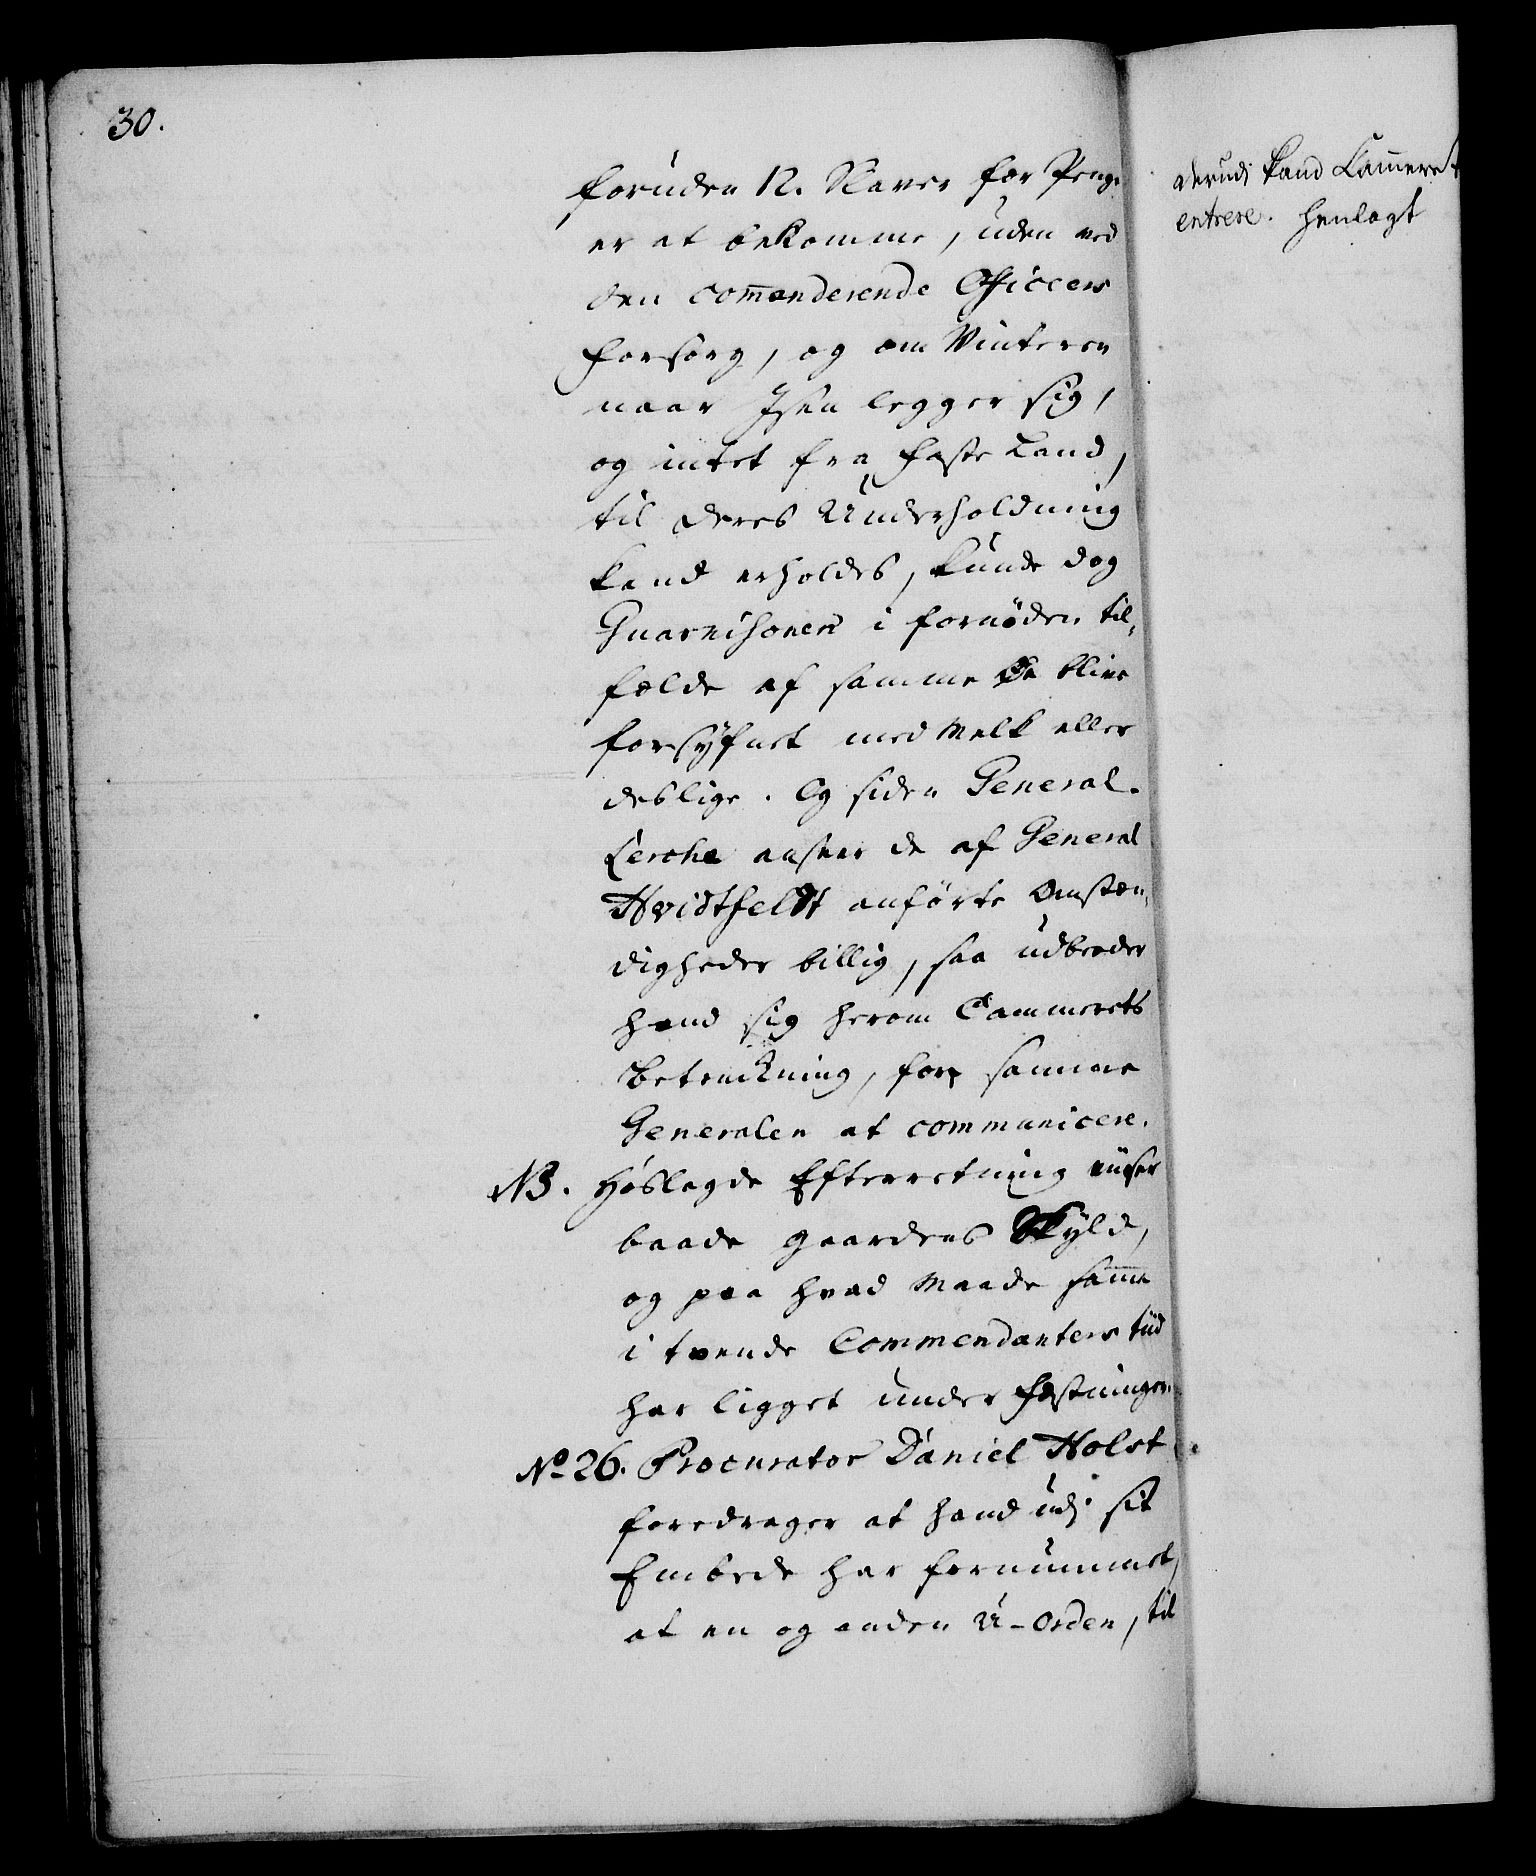 30.
foruden 12. Slaver for Penge
er at bekomme, uden ved
den com̄anderende Officers
forsorg, og om Vinteren
naar Isen legger sig,
og intet fra faste Land,
til deres Underholdning
kand erholdes, kunde dog
Guarnisonen i fornøden til„
felde af samme da blive
forsyfnet med Melk eller
deslige. Og siden General-
Lerche anseer de af General
Hvidtfeldt anførte Omstæn„
digheder billig, saa udbeder
hand sig herom Cammerets
betænkning, for samme
Generalen at communicere.
NB. Hoslagde Efterretning viiser
baade gaardens Skyld,
og paa hvad Maade sam̄e
i tvende Commendanters tiid
har ligget under Fæstningen.
No 26. Procurator Daniel Holst
foredrager at hand udj sit
Embede har fornummet,
at en og anden U-Orden, til
derudj kand Cam̄eret
entrere. henlagt